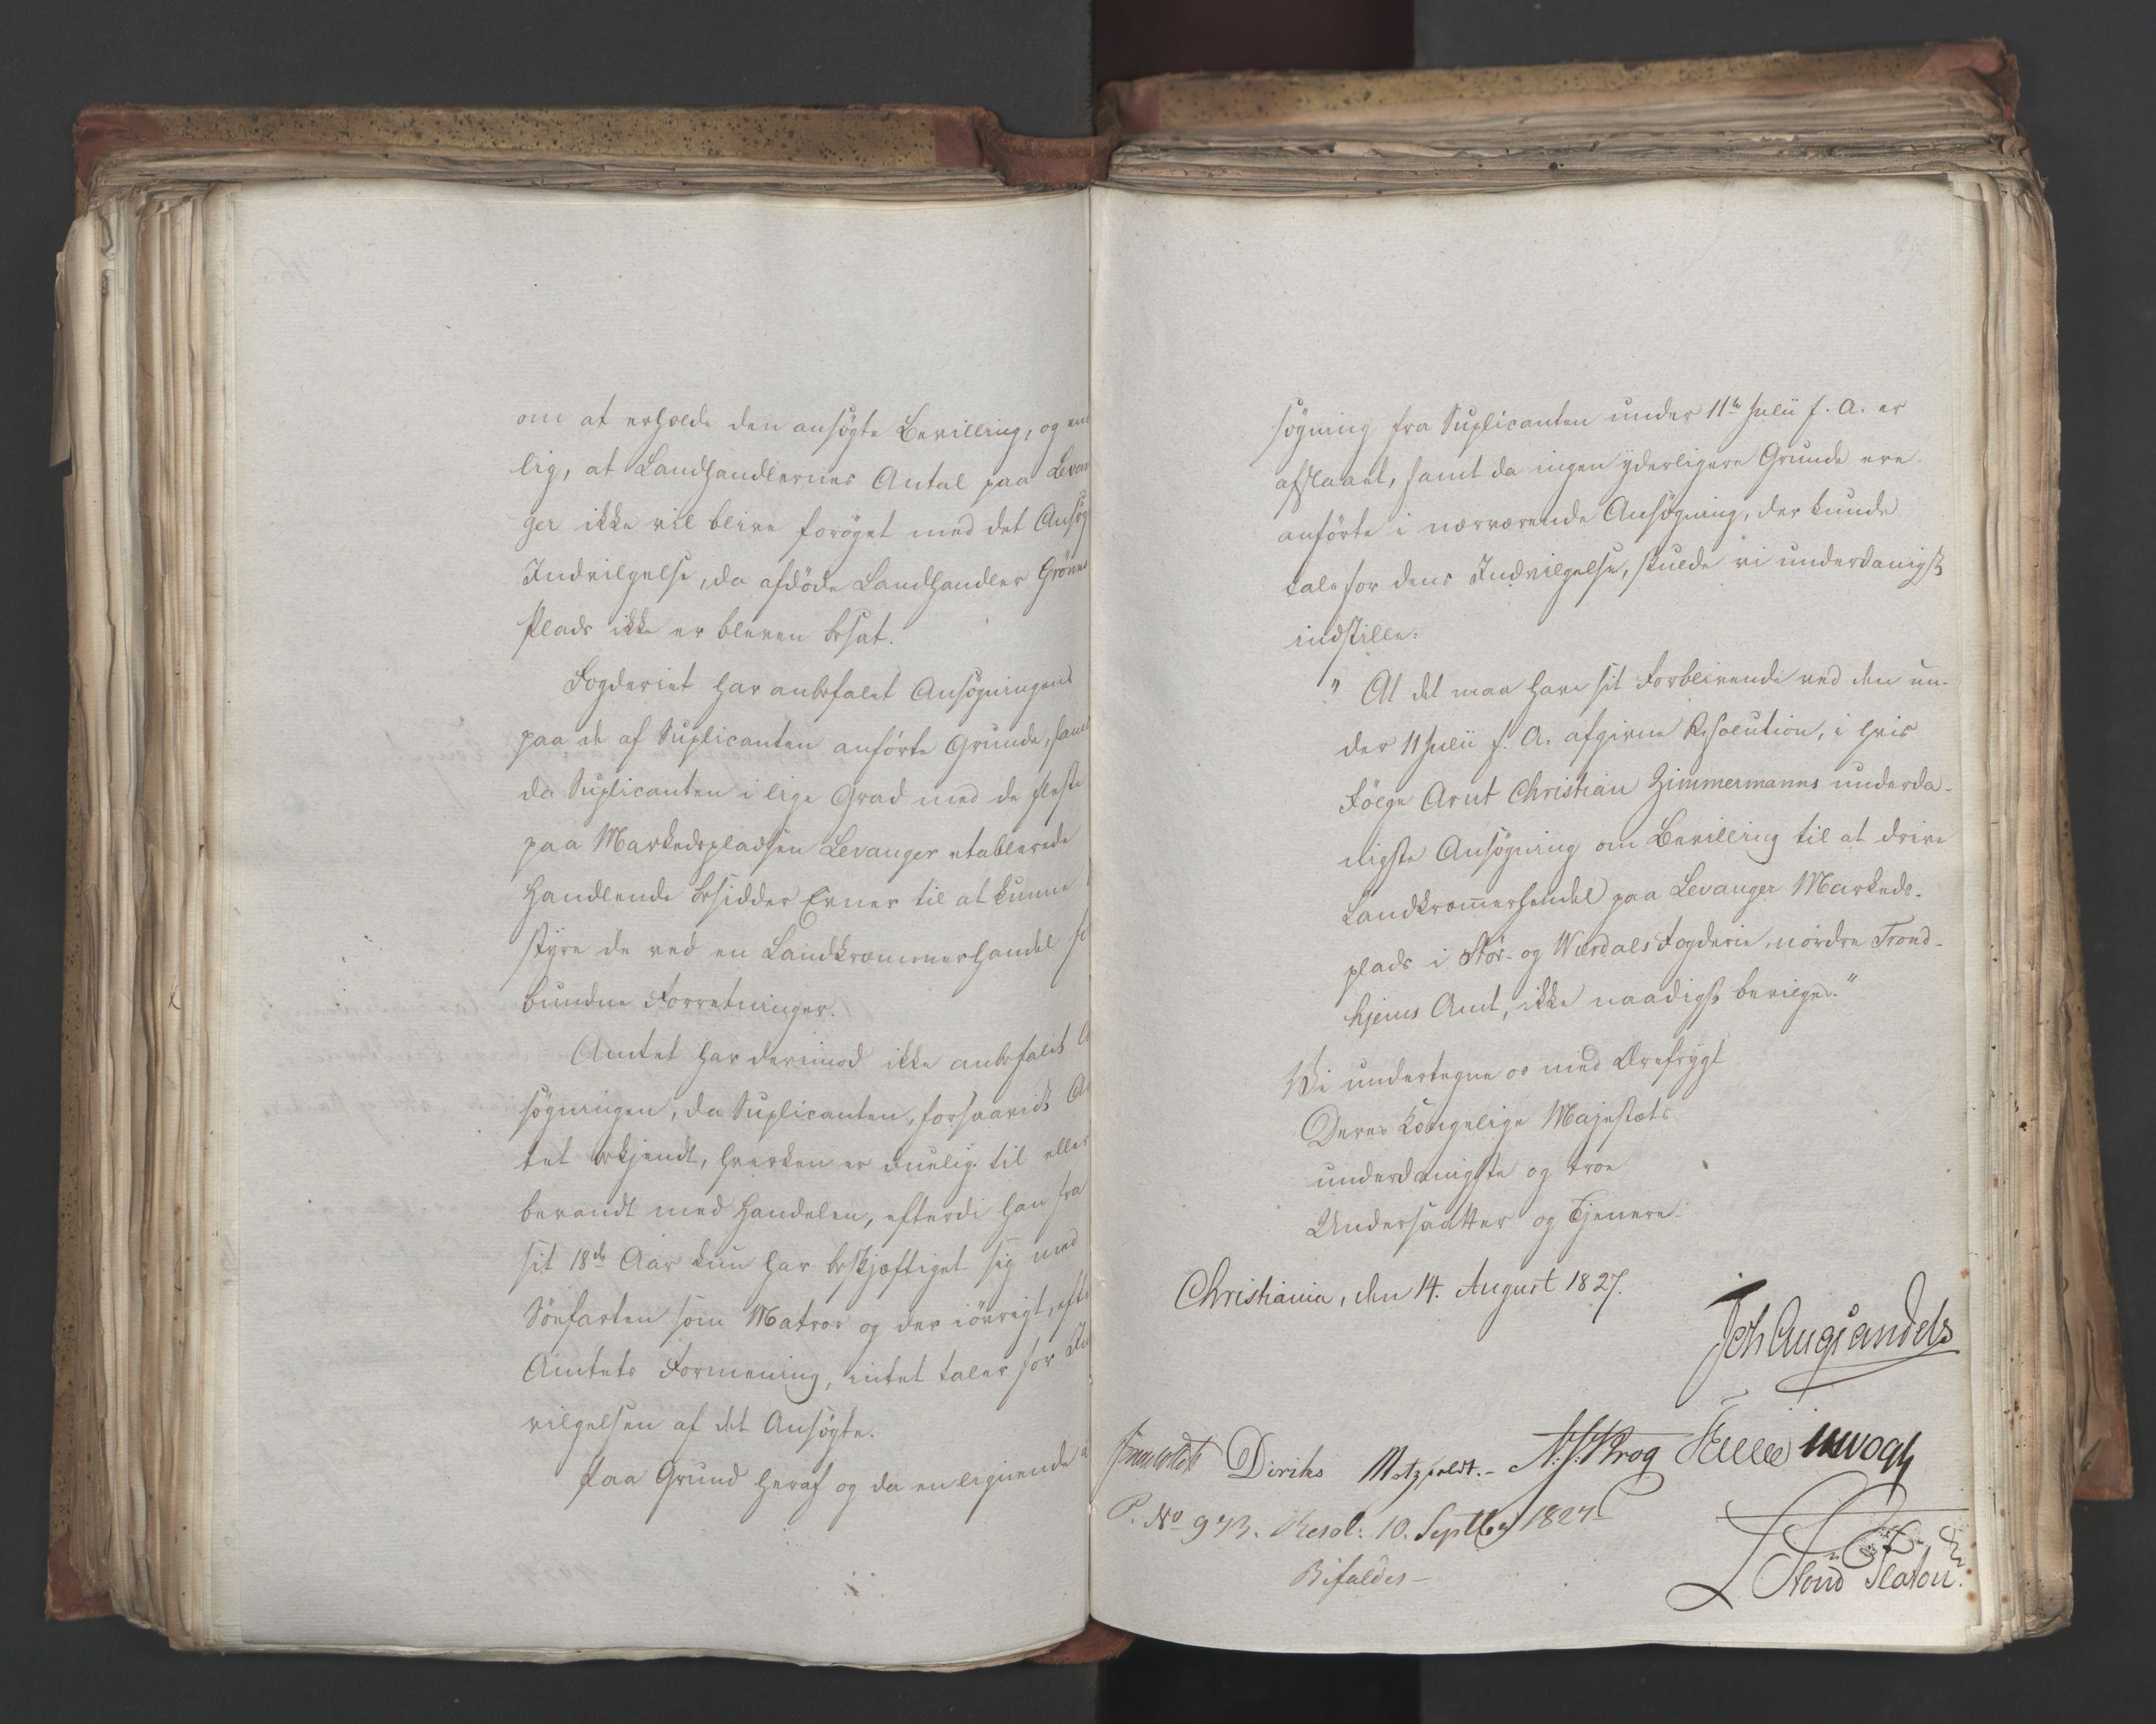 om at erholde den ansøgte Bevilling, og en
lig, at Landhandlernes Antal paa Levan
ger ikke vil blive forøget med det Ansøg
Indvilgelse, da afdøde Landhandler Grönns
Plads ikke er bleven besat.
Fogderiet har anbefalet Ansøgningen
paa de af Suplicanten anførte Grunde, samt
da Suplicanten i lige Grad med de fleste
paa Markedspladsen Levanger etablerede
Handlende besidder Evner til at kunne
styre de ved en Landkrammerhandel
bundne Forretninger.
Amtet har derimod ikke anbefalet
søgningen, da Suplicanten, forsaavidt
tet bekjendt, hverken er duelig til eller
bevandt med Handelen, efterdi han fra
sit 18de Aar kun har beskjæftiget sig med
Söefarten som Matros og der iövrigt, eft
Amtets Formening, intet taler for Ind
vilgelsen af det Ansøgte.
Paa Grund heraf og da en lignende
søgning fra Suplicanten under 11te Julii f. A. er
afslaaet, samt da ingen yderligere Grunde ere
anførte i nærværende Ansøgning, der kunde
tale for dens Indvilgelse, skulde vi underdanigst
indstille:
" At det maa have sit Forblivende ved den un-
der 11 Julii f. A. afgivne Resolution, i hvis
Følge Arnt Christian Zimmermanns underda-
nigste Ansøgning om Bevilling til at drive
Landkramerhandel paa Levanger Markeds-
plads i Stör- og Værdals Fogderie, nordre Trond-
hjems Amt, ikke naadigst bevilges."
Vi undertegne os med Ærefrygt
Deres Kongelige Majestæts
underdanigste og troe
Undersaatter og Tjenere.
Christiania, den 14. August 1827.
Joh Aug Sandels
Diriks Motzfeldt.- N. J. Krog
P. No 973. Resol: 10. Septbr 1827
Bifaldes-